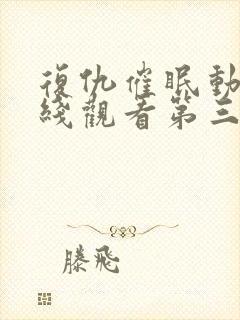 復仇催眠動
綫觀看第三
滕飛